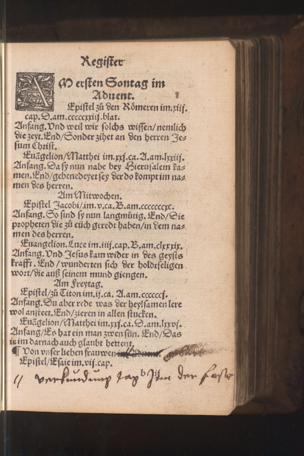 Register
AM ersten Sontag im
Aduent.
Epistel zů den Römeren im.xiij.
cap. D.am.cccccxiij.blat.
Anfang. Vnd weil wir solchs wissen/nemlich
die zeyt. End/Sonder zihet an den herren Je-
sum Christ.
Euāgelion/Matthei im.xxj.ca.A.am.lxxiij.
Anfang. Da sy nun nahe bey Hierusalem ka-
men. End/gebenedeyet sey der do kompt im na-
men des herren.
Am Mitwochen.
Epistel Jacobi/im.v.ca.B.am.
Anfang. So sind sy nun langmütig. End/Die
propheten die zů eüch geredt haben/in dem na-
men des herren.
Euangelion. Luce im.iiij.cap.B,am.clxxix.
Anfang. Vnd Jesus kam wider in des geysts
krafft. End/wunderten sich der holdseligen
wort/die auß seinem mund giengen.
Am Freytag.
Epistel/zů Titon im.ij.ca. A.am.
Anfang. Du aber rede was der heylsamen lere
wol ansteet. End/zieren in allen stucken.
Euāgelion/Matthei im.xxj.ca.
Anfang/Es hat ein man zwen sün. End/Das
ir im darnach auch glaubt hettent.
¶ Von vnser lieben frauwen
Epistel/Esaie im.vij.cap.
verkundung tag in der fast